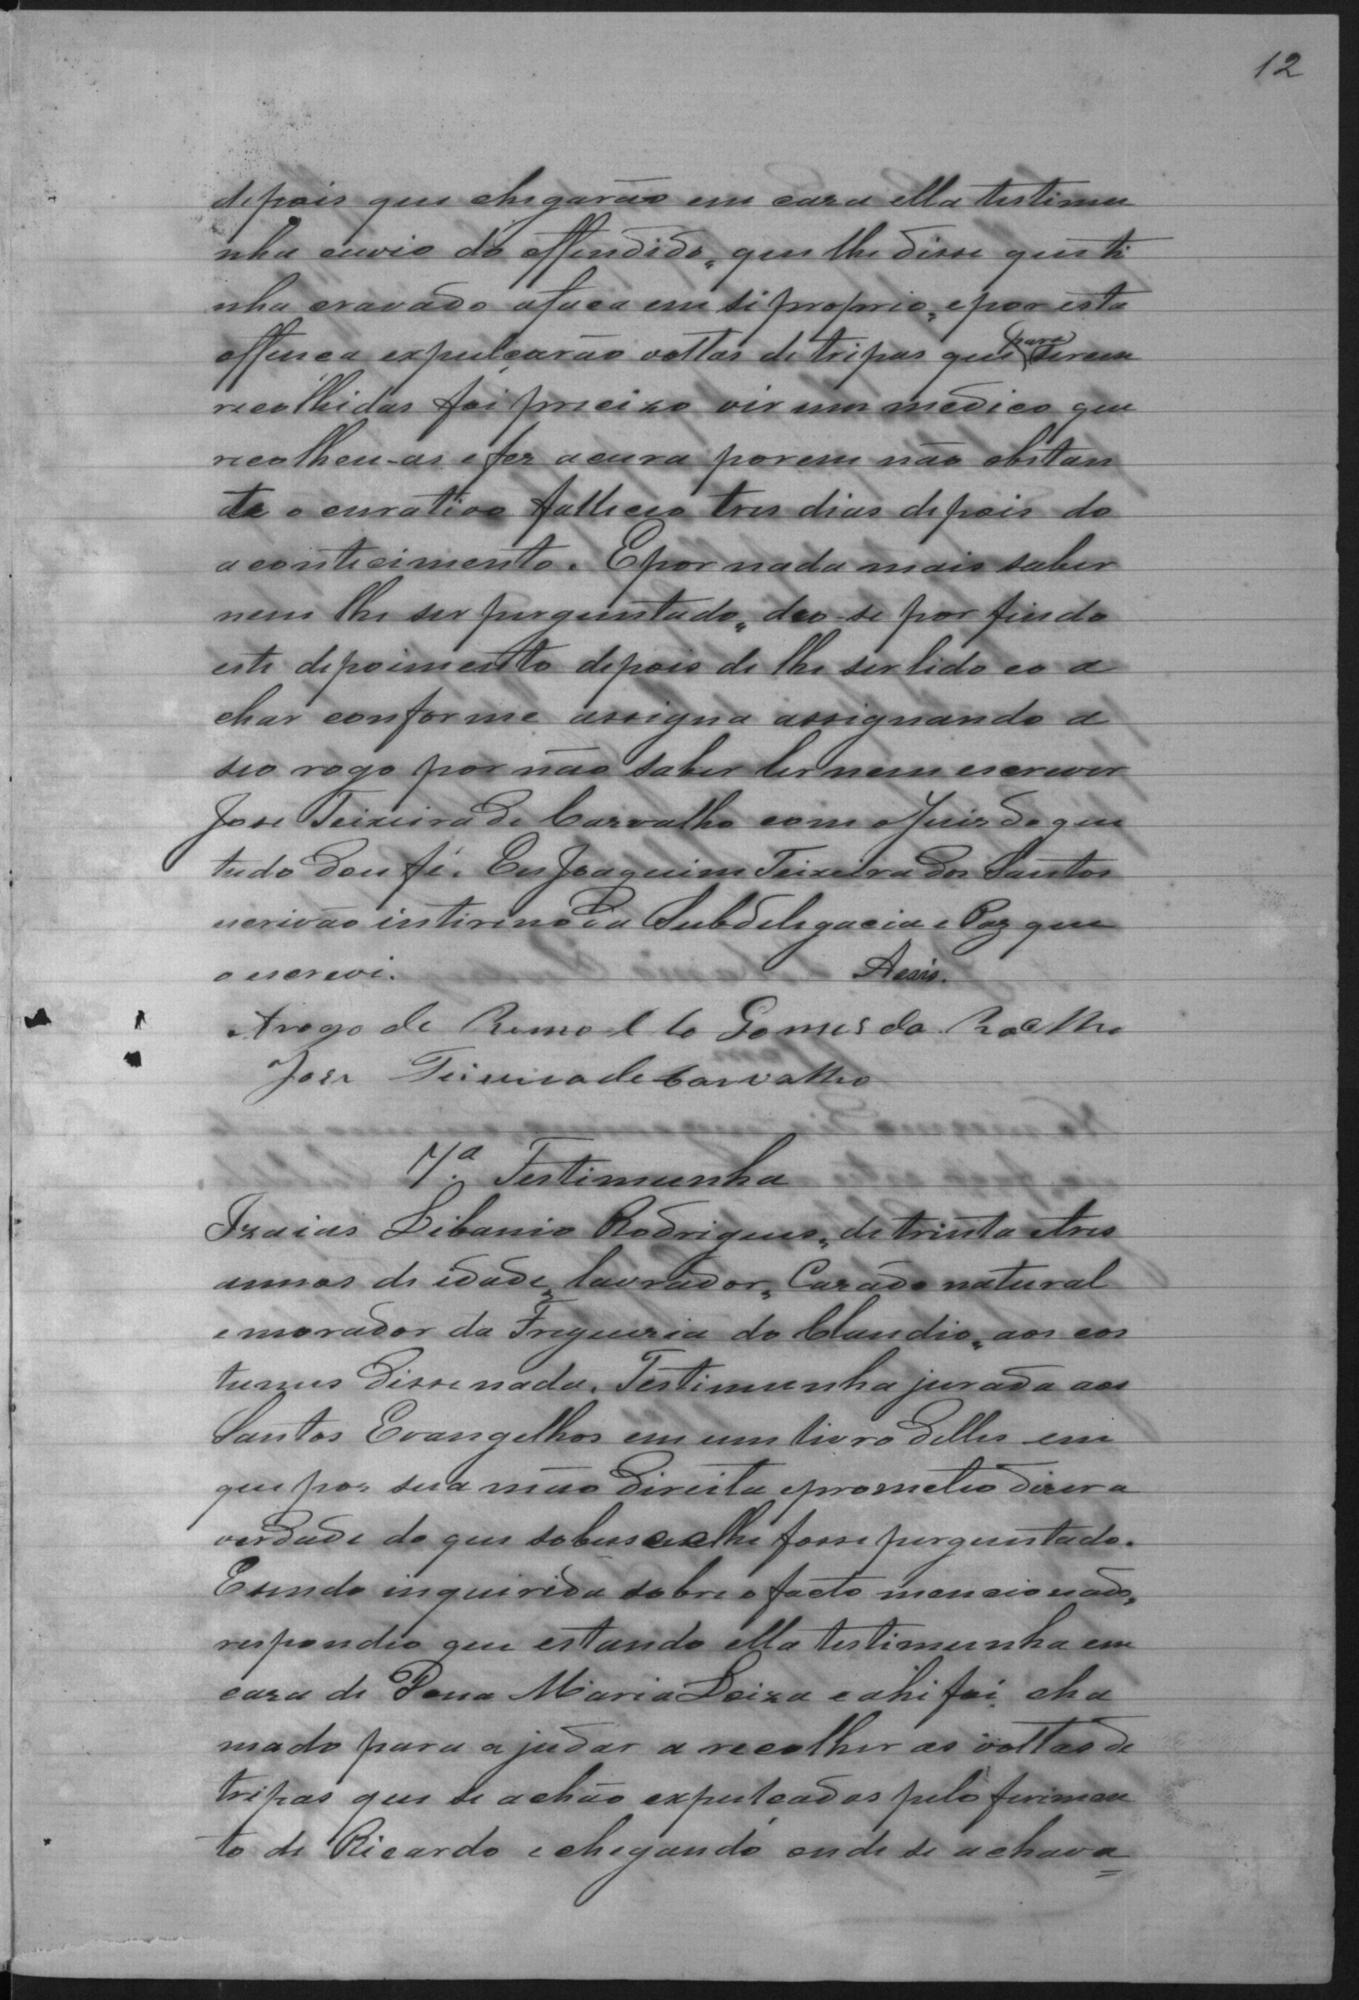 12
depois que chegarão em caza ella testimu
nha ouvio do offendido, que lhe disse que ti
nha cravado a faca em si proprio, e por esta
offença expulçarão voltas de tripas que para serem
recolhidas foi precizo vir um medico que
recolheu-as e fez a cura porem não obstan
te o curativo falleceo tres dias depois do
acontecimento. E por nada mais saber
nem lhe ser perguntado, deo-se por findo
este depoimento depois de lhe ser lido e o a
char conforme assigna assignando a
seo rogo por não saber ler nem escrever
Jose Teixeira de Carvalho com o Juiz do que
tudo dou fé. Eu Joaquim Teixeira dos Santos
escrivão intirino da Subdelegacia e Paz que
o escrevi. Assis.
Arogo de Gomes da Rocha
Jose Teixeira de Carvalho
7ª Testimunha
Izaias Libanio Rodrigues, de trinta e tres
annos de idade, lavrador, Cazado natural
e morador da Freguezia do Claudio, aos cos
tumes disse nada. Testimunha jurada aos
Santos Evangelhos em um livro delles em
que pos sua mão direita e prometeo dizer a
verdade do que soubesse e lhe fosse perguntado.
E sendo inquirida sobre o facto mencionado,
respondeo que estando ella testimunha em
caza de Dona Maria Loiza e ahi foi cha
mado para ajudar a recolher as voltas de
tripas que se achão expulçadas pelo ferimen
to de Ricardo e chegando onde se achava